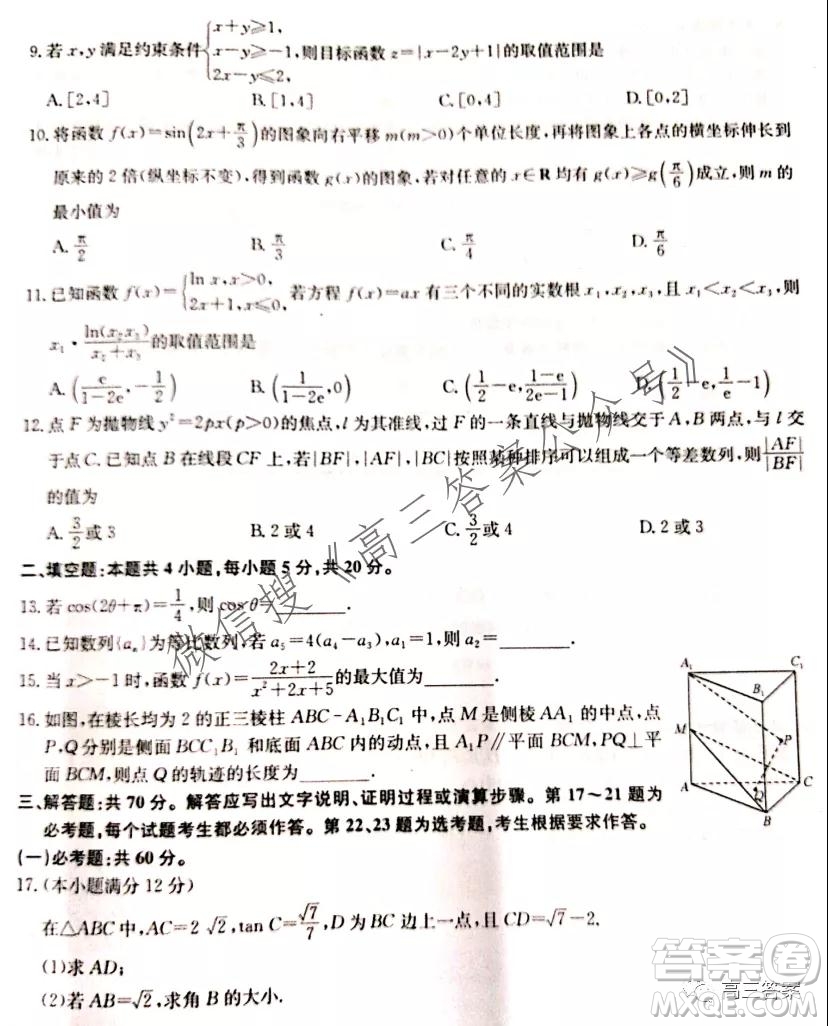 9.若 x,y 满足约束条件{x+y≥1, x-y≥-1, 2x-y≤2, 则目标函数 z=|x-2y+1|的取值范围是
A.[2,4] B.[1,4] C.[0,4] D.[0,2]
10.将函数 f(x)=sin(2x+π/3)的图象向右平移 m(m>0)个单位长度,再将图象上各点的横坐标伸长到
原来的 2 倍(纵坐标不变),得到函数 g(x)的图象,若对任意的 x∈R 均有 g(x)≥g(π/6)成立,则 m 的
最小值为
A. π/2 B. π/3 C. π/4 D. π/6
11.已知函数 f(x)={ln x,x>0, 2x+1,x≤0, 若方程 f(x)=ax 有三个不同的实数根 x₁,x₂,x₃,且 x₁<x₂<x₃,则
x₁·ln(x₂x₃)/(x₂+x₃)的取值范围是
A.(e/(1-2e),-1/2) B.(1/(1-2e),0) C.(1/2-e,1/(2e-1)) D.(1/2-e,1/2-1)
12.点 F 为抛物线 y²=2px(p>0)的焦点,l 为其准线,过 F 的一条直线与抛物线交于 A,B 两点,与 l 交
于点 C.已知点 B 在线段 CF 上,若|BF|,|AF|,|BC|按照某种排序可以组成一个等差数列,则|AF|/|BF|
的值为
A. 3/2 或 3 B. 2 或 4 C. 3/2 或 4 D. 2 或 3
二、填空题:本题共 4 小题,每小题 5 分,共 20 分。
13.若 cos(2θ+π)=1/4,则 cos θ=______.
14.已知数列{aₙ}为等比数列,若 a₅=4(a₄-a₃),a₁=1,则 a₂=______.
15.当 x>-1 时,函数 f(x)=(2x+2)/(x²+2x+5)的最大值为______.
16.如图,在棱长均为 2 的正三棱柱 ABC-A₁B₁C₁ 中,点 M 是侧棱 AA₁ 的中点,点
P,Q 分别是侧面 BCC₁B₁ 和底面 ABC 内的动点,且 A₁P∥平面 BCM,PQ⊥平
面 BCM,则点 Q 的轨迹的长度为______.
A₁ C₁
B₁
M P
A C
Q
B
三、解答题:共 70 分。解答应写出文字说明、证明过程或演算步骤。第 17~21 题为
必考题,每个试题考生都必须作答。第 22、23 题为选考题,考生根据要求作答。
(一)必考题:共 60 分。
17.(本小题满分 12 分)
在△ABC 中,AC=2√2,tan C=√7/7,D 为 BC 边上一点,且 CD=√7-2.
(1)求 AD;
(2)若 AB=√2,求角 B 的大小.
微信搜《高三答案公众号》
答案圈
MXQE.COM
高三答案